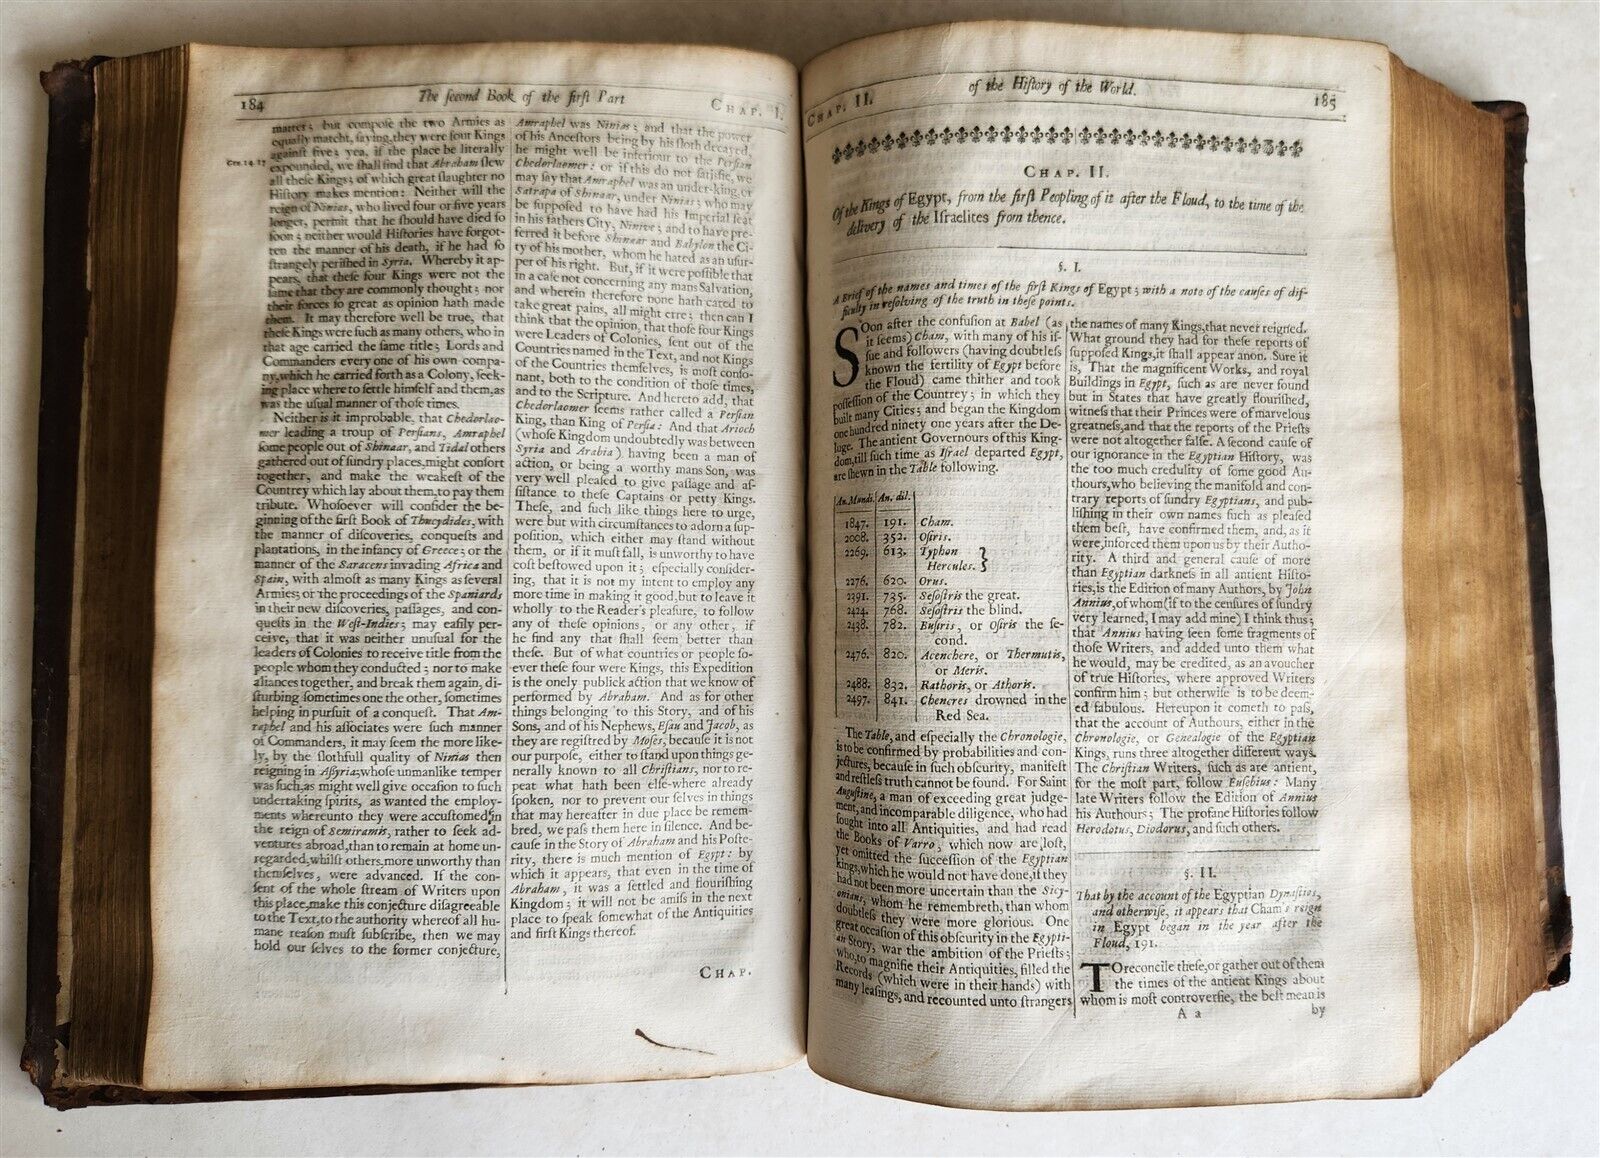 184 The second Book of the first Part CHAP. I.
matter; but compose the two Armies as
equally matcht, saying, they were four Kings
against five; yea, if the place be literally
Gen. 14. 17
expounded, we shall find that Abraham slew
all these Kings; of which great slaughter no
History makes mention: Neither will the
reign of Ninias, who lived four or five years
longer, permit that he should have died so
soon; neither would Histories have forgot-
ten the manner of his death, if he had so
strangely perished in Syria. Whereby it ap-
pears, that these four Kings were not the
same that they are commonly thought; nor
their forces so great as opinion hath made
them. It may therefore well be true, that
these Kings were such as many others, who in
that age carried the same title; Lords and
Commanders every one of his own compa-
ny, which he carried forth as a Colony, seek-
ing place where to settle himself and them, as
was the usual manner of those times.
Neither is it improbable, that Chedorlao-
mer leading a troup of Persians, Amraphel
some people out of Shinaar, and Tidal others
gathered out of sundry places, might consort
together, and make the weakest of the
Countrey which lay about them, to pay them
tribute. Whosoever will consider the be-
ginning of the first Book of Thucydides, with
the manner of discoveries, conquests and
plantations, in the infancy of Greece; or the
manner of the Saracens invading Africa and
Spain, with almost as many Kings as several
Armies; or the proceedings of the Spaniards
in their new discoveries, passages, and con-
quests in the West-Indies; may easily per-
ceive, that it was neither unusual for the
leaders of Colonies to receive title from the
people whom they conducted; nor to make
aliances together, and break them again, di-
sturbing sometimes one the other, sometimes
helping in pursuit of a conquest. That Am-
raphel and his associates were such manner
of Commanders, it may seem the more like-
ly, by the slothfull quality of Ninias then
reigning in Assyria; whose unmanlike temper
was such, as might well give occasion to such
undertaking spirits, as wanted the employ-
ments whereunto they were accustomed in
the reign of Semiramis, rather to seek ad-
ventures abroad, than to remain at home un-
regarded, whilst others, more unworthy than
themselves, were advanced. If the con-
sent of the whole stream of Writers upon
this place, make this conjecture disagreeable
to the Text, to the authority whereof all hu-
mane reason must subscribe, then we may
hold our selves to the former conjecture,
Amraphel was Ninias; and that the power
of his Ancestors being by his sloth decayed,
he might well be inferiour to the Persian
Chedorlaomer: or if this do not satisfie, we
may say that Amraphel was an under-king, or
Satrapa of Shinaar, under Ninias; who may
be supposed to have had his Imperial seat
in his fathers City, Ninive; and to have pre-
ferred it before Shinaar and Babylon the Ci-
ty of his mother, whom he hated as an usur-
per of his right. But, if it were possible that
in a case not concerning any mans Salvation,
and wherein therefore none hath cared to
take great pains, all might erre; then can I
think that the opinion, that those four Kings
were Leaders of Colonies, sent out of the
Countries named in the Text, and not Kings
of the Countries themselves, is most conso-
nant, both to the condition of those times,
and to the Scripture. And hereto add, that
Chedorlaomer seems rather called a Persian
King, than King of Persia: And that Arioch
(whose Kingdom undoubtedly was between
Syria and Arabia) having been a man of
action, or being a worthy mans Son, was
very well pleased to give passage and as-
sistance to these Captains or petty Kings.
These, and such like things here to urge,
were but with circumstances to adorn a sup-
position, which either may stand without
them, or if it must fall, is unworthy to have
cost bestowed upon it; especially consider-
ing, that it is not my intent to employ any
more time in making it good, but to leave it
wholly to the Reader's pleasure, to follow
any of these opinions, or any other, if
he find any that shall seem better than
these. But of what countries or people so-
ever these four were Kings, this Expedition
is the onely publick action that we know of
performed by Abraham. And as for other
things belonging to this Story, and of his
Sons, and of his Nephews, Esau and Jacob, as
they are registred by Moses, because it is not
our purpose, either to stand upon things ge-
nerally known to all Christians, nor to re-
peat what hath been else-where already
spoken, nor to prevent our selves in things
that may hereafter in due place be remem-
bred, we pass them here in silence. And be-
cause in the Story of Abraham and his Poste-
rity, there is much mention of Egypt: by
which it appears, that even in the time of
Abraham, it was a settled and flourishing
Kingdom; it will not be amiss in the next
place to speak somewhat of the Antiquities
and first Kings thereof.
CHAP.
CHAP. II. of the History of the World. 185
CHAP. II.
Of the Kings of Egypt, from the first Peopling of it after the Floud, to the time of the
delivery of the Israelites from thence.
§. I.
A Brief of the names and times of the first Kings of Egypt; with a note of the causes of dif-
ficulty in resolving of the truth in these points.
SOon after the confusion at Babel (as
it seems) Cham, with many of his is-
sue and followers (having doubtless
known the fertility of Egypt before
the Floud) came thither and took
possession of the Countrey; in which they
built many Cities; and began the Kingdom
one hundred ninety one years after the De-
luge. The antient Governours of this King-
dom, till such time as Israel departed Egypt,
are shewn in the Table following.
An. Mundi. An. dil.
1847. 191. Cham.
2008. 352. Osiris.
2269. 613. Typhon
Hercules. }
2276. 620. Orus.
2391. 735. Sesostris the great.
2424. 768. Sesostris the blind.
2438. 782. Busiris, or Osiris the se-
cond.
2476. 820. Acenchere, or Thermutis,
or Meris.
2488. 832. Rathoris, or Athoris.
2497. 841. Chencres drowned in the
Red Sea.
The Table, and especially the Chronologie,
is to be confirmed by probabilities and con-
jectures, because in such obscurity, manifest
and restless truth cannot be found. For Saint
Augustine, a man of exceeding great judge-
ment, and incomparable diligence, who had
sought into all Antiquities, and had read
the Books of Varro, which now are lost,
yet omitted the succession of the Egyptian
kings, which he would not have done, if they
had not been more uncertain than the Sicy-
onians, whom he remembreth, than whom
doubtless they were more glorious. One
great occasion of this obscurity in the Egypti-
an Story, was the ambition of the Priests;
who, to magnifie their Antiquities, filled the
Records (which were in their hands) with
many leasings, and recounted unto strangers
the names of many Kings, that never reigned.
What ground they had for these reports of
supposed Kings, it shall appear anon. Sure it
is, That the magnificent Works, and royal
Buildings in Egypt, such as are never found
but in States that have greatly flourished,
witness that their Princes were of marvelous
greatness, and that the reports of the Priests
were not altogether false. A second cause of
our ignorance in the Egyptian History, was
the too much credulity of some good Au-
thours, who believing the manifold and con-
trary reports of sundry Egyptians, and pub-
lishing in their own names such as pleased
them best, have confirmed them, and, as it
were, inforced them upon us by their Autho-
rity. A third and general cause of more
than Egyptian darkness in all antient Histo-
ries, is the Edition of many Authors, by John
Annius, of whom (if to the censures of sundry
very learned, I may add mine) I think thus;
that Annius having seen some fragments of
those Writers, and added unto them what
he would, may be credited, as an avoucher
of true Histories, where approved Writers
confirm him; but otherwise is to be deem-
ed fabulous. Hereupon it cometh to pass,
that the account of Authours, either in the
Chronologie, or Genealogie of the Egyptian
Kings, runs three altogether different ways.
The Christian Writers, such as are antient,
for the most part, follow Eusebius: Many
late Writers follow the Edition of Annius
his Authours; The profane Histories follow
Herodotus, Diodorus, and such others.
§. II.
That by the account of the Egyptian Dynasties,
and otherwise, it appears that Cham's reign
in Egypt began in the year after the
Floud, 191.
TO reconcile these, or gather out of them
the times of the antient Kings about
whom is most controversie, the best mean is
A a by